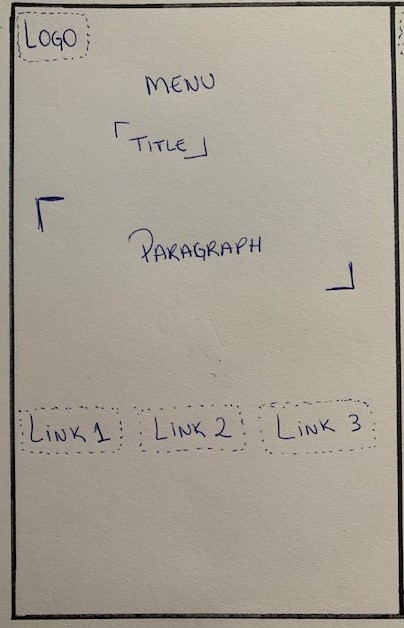 LOGO
MENU
TITLE
PARAGRAPH
LINK 1 LINK 2 LINK 3